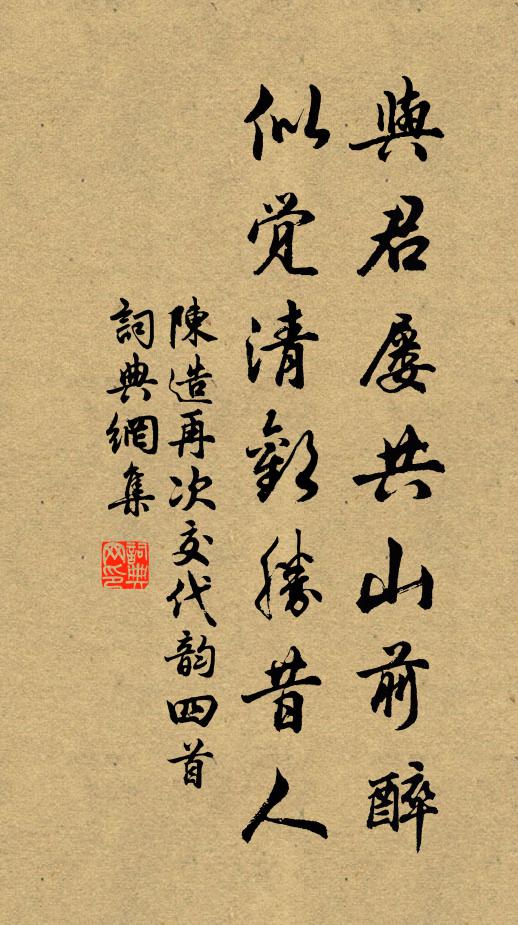 與君屡共山前醉
似覺清歡勝昔人
陳造再次交代韵四首
詞典網集
詞典網印